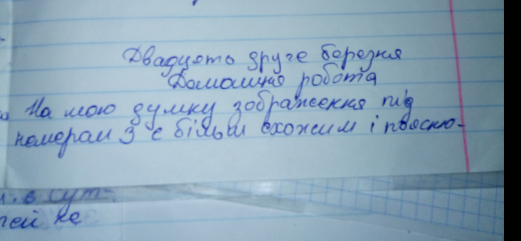 Двадцять друге березня
Домашня робота
На мою думку зображення під
номером 3 є більш схожим і поясню-
в сут-
тей не